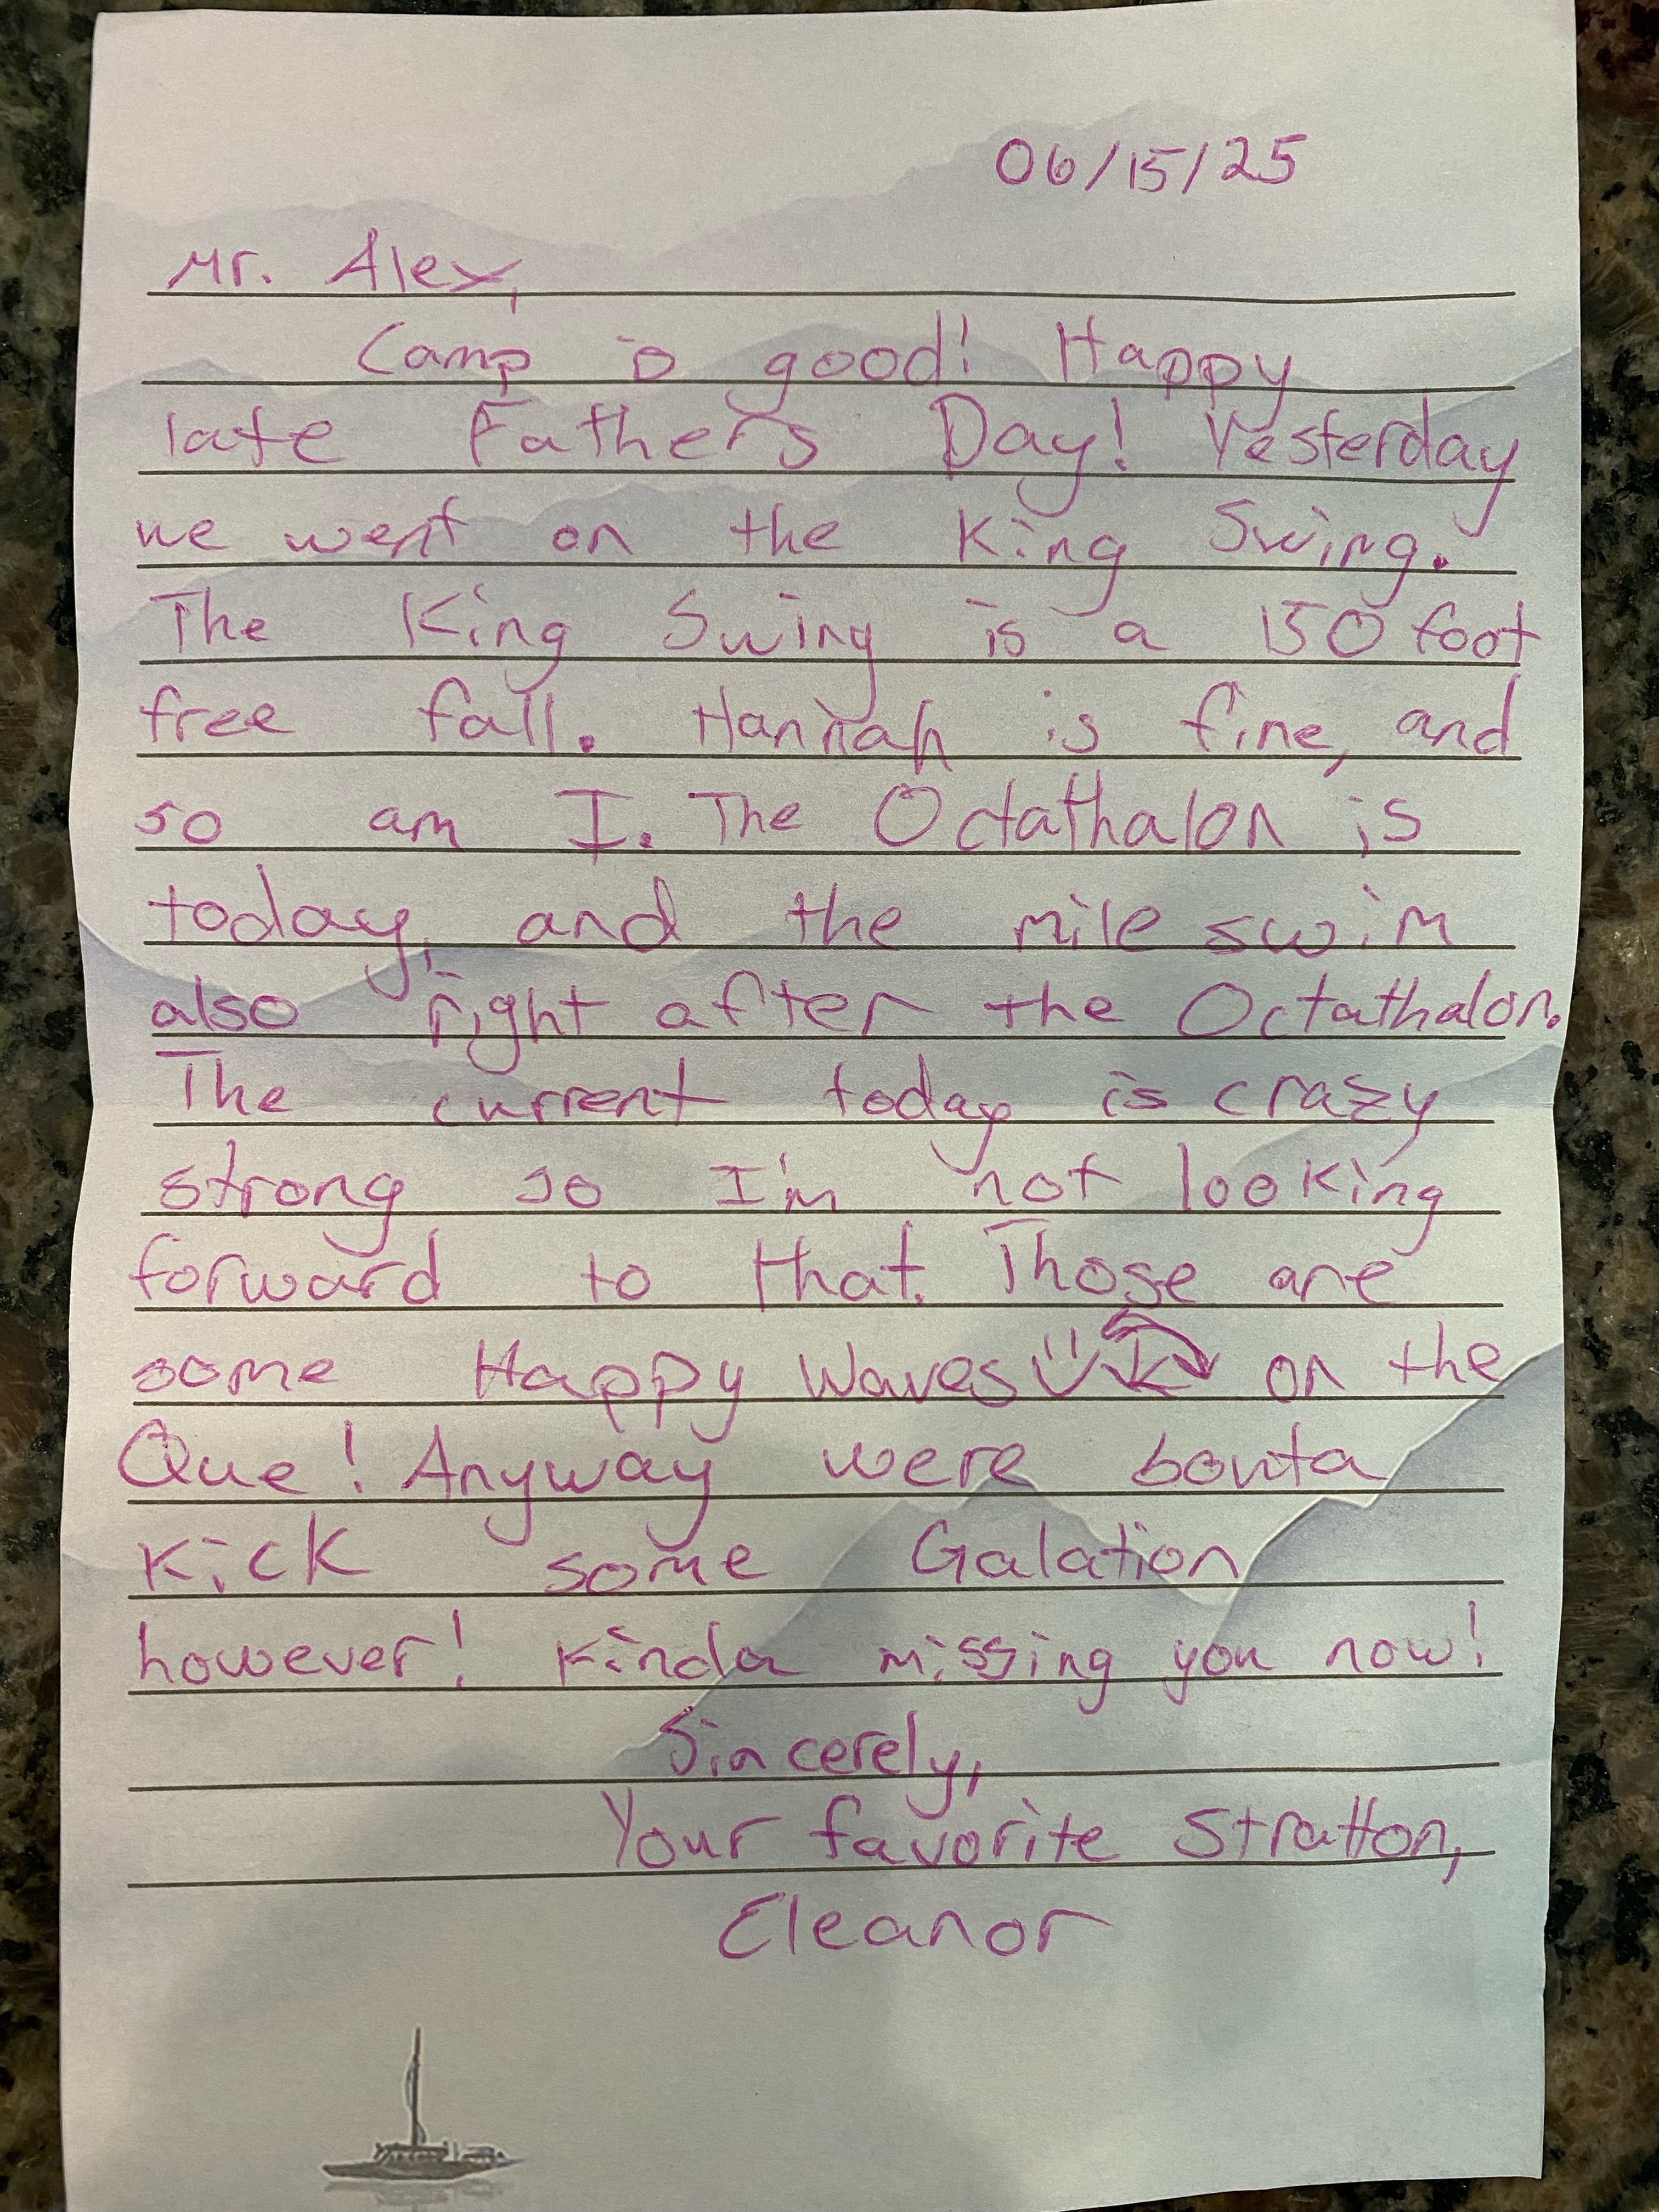 06/15/25
Mr. Alex,
Camp is good! Happy
late Fathers Day! Yesterday
we went on the King Swing.
The King Swing is a 150 foot
free fall. Hannah is fine, and
so am I. The Octathalon is
today, and the mile swim
also right after the Octathalon.
The current today is crazy
strong so I'm not looking
forward to that. Those are
some Happy Waves on the
Que! Anyway were bouta
Kick some Galation
however! Kinda missing you now!
Sincerely,
Your favorite Stratton,
Eleanor